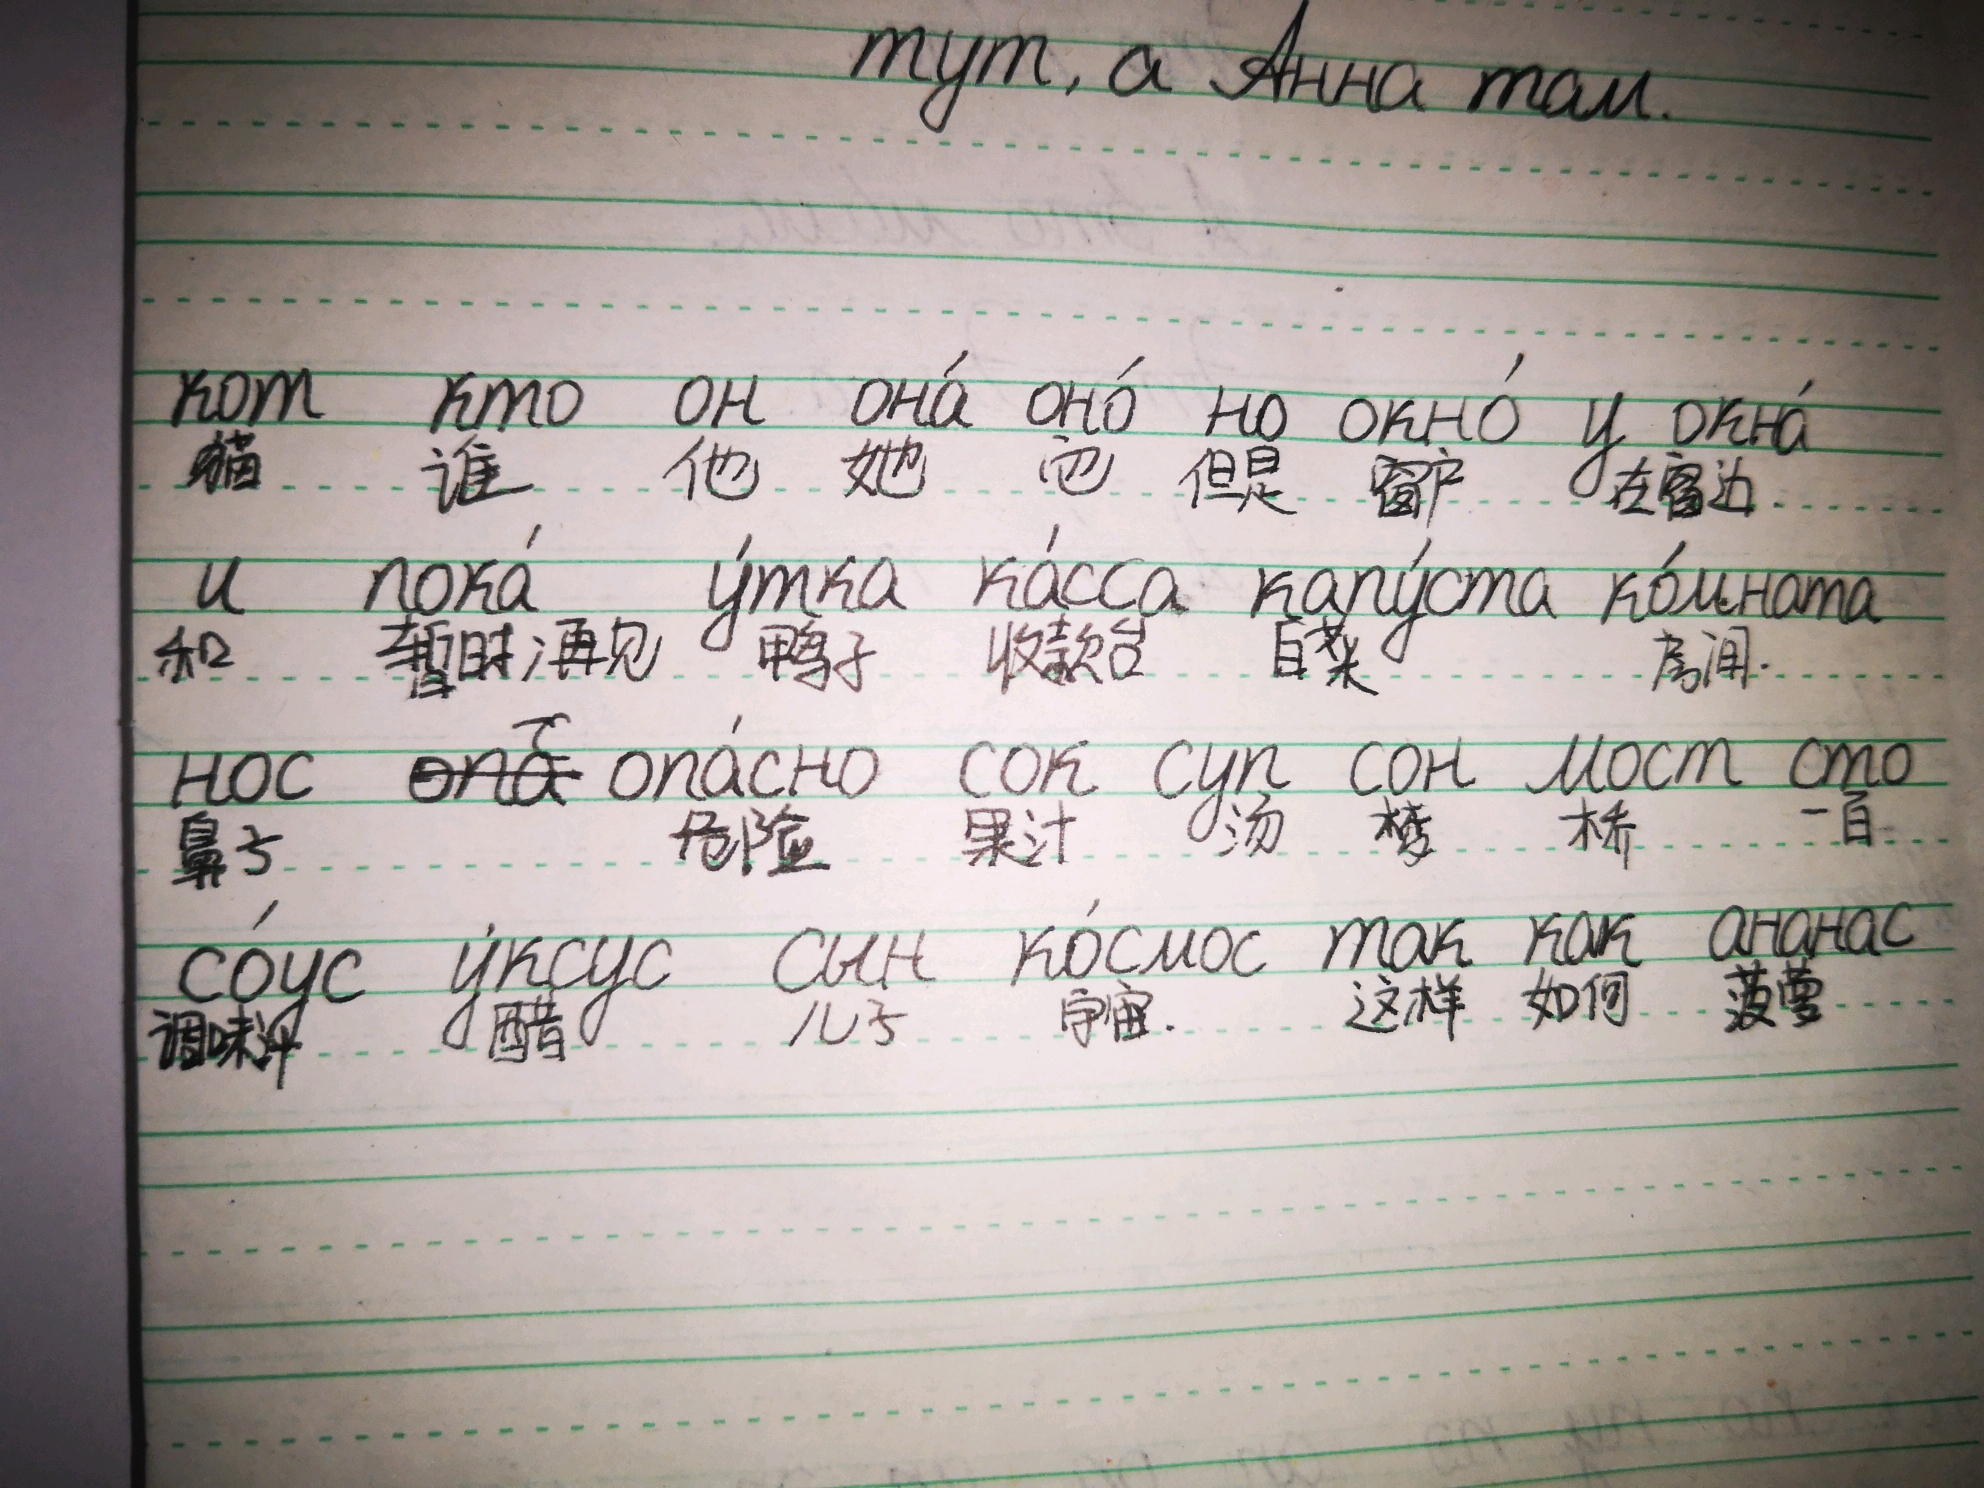 тут, а Анна там.
кот кто он она́ оно́ но окно́ у окна́
猫 谁 他 她 它 但是 窗户 在窗边.
и пока́ у́тка ка́сса капу́ста ко́мната
和 暂时;再见 鸭子 收款台 白菜 房间.
нос опа́сно сок суп сон мост сто
鼻子 危险 果汁 汤 楼 桥 一百
со́ус у́ксус сын ко́смос так как ананас
调味汁 醋 儿子 宇宙. 这样 如何 菠萝